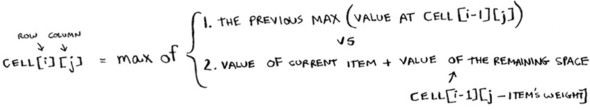 ROW COLUMN
CELL[i][j] = max of
1. THE PREVIOUS MAX (VALUE AT CELL[i-1][j])
VS
2. VALUE OF CURRENT ITEM + VALUE OF THE REMAINING SPACE
CELL[i-1][j-ITEM'S WEIGHT]